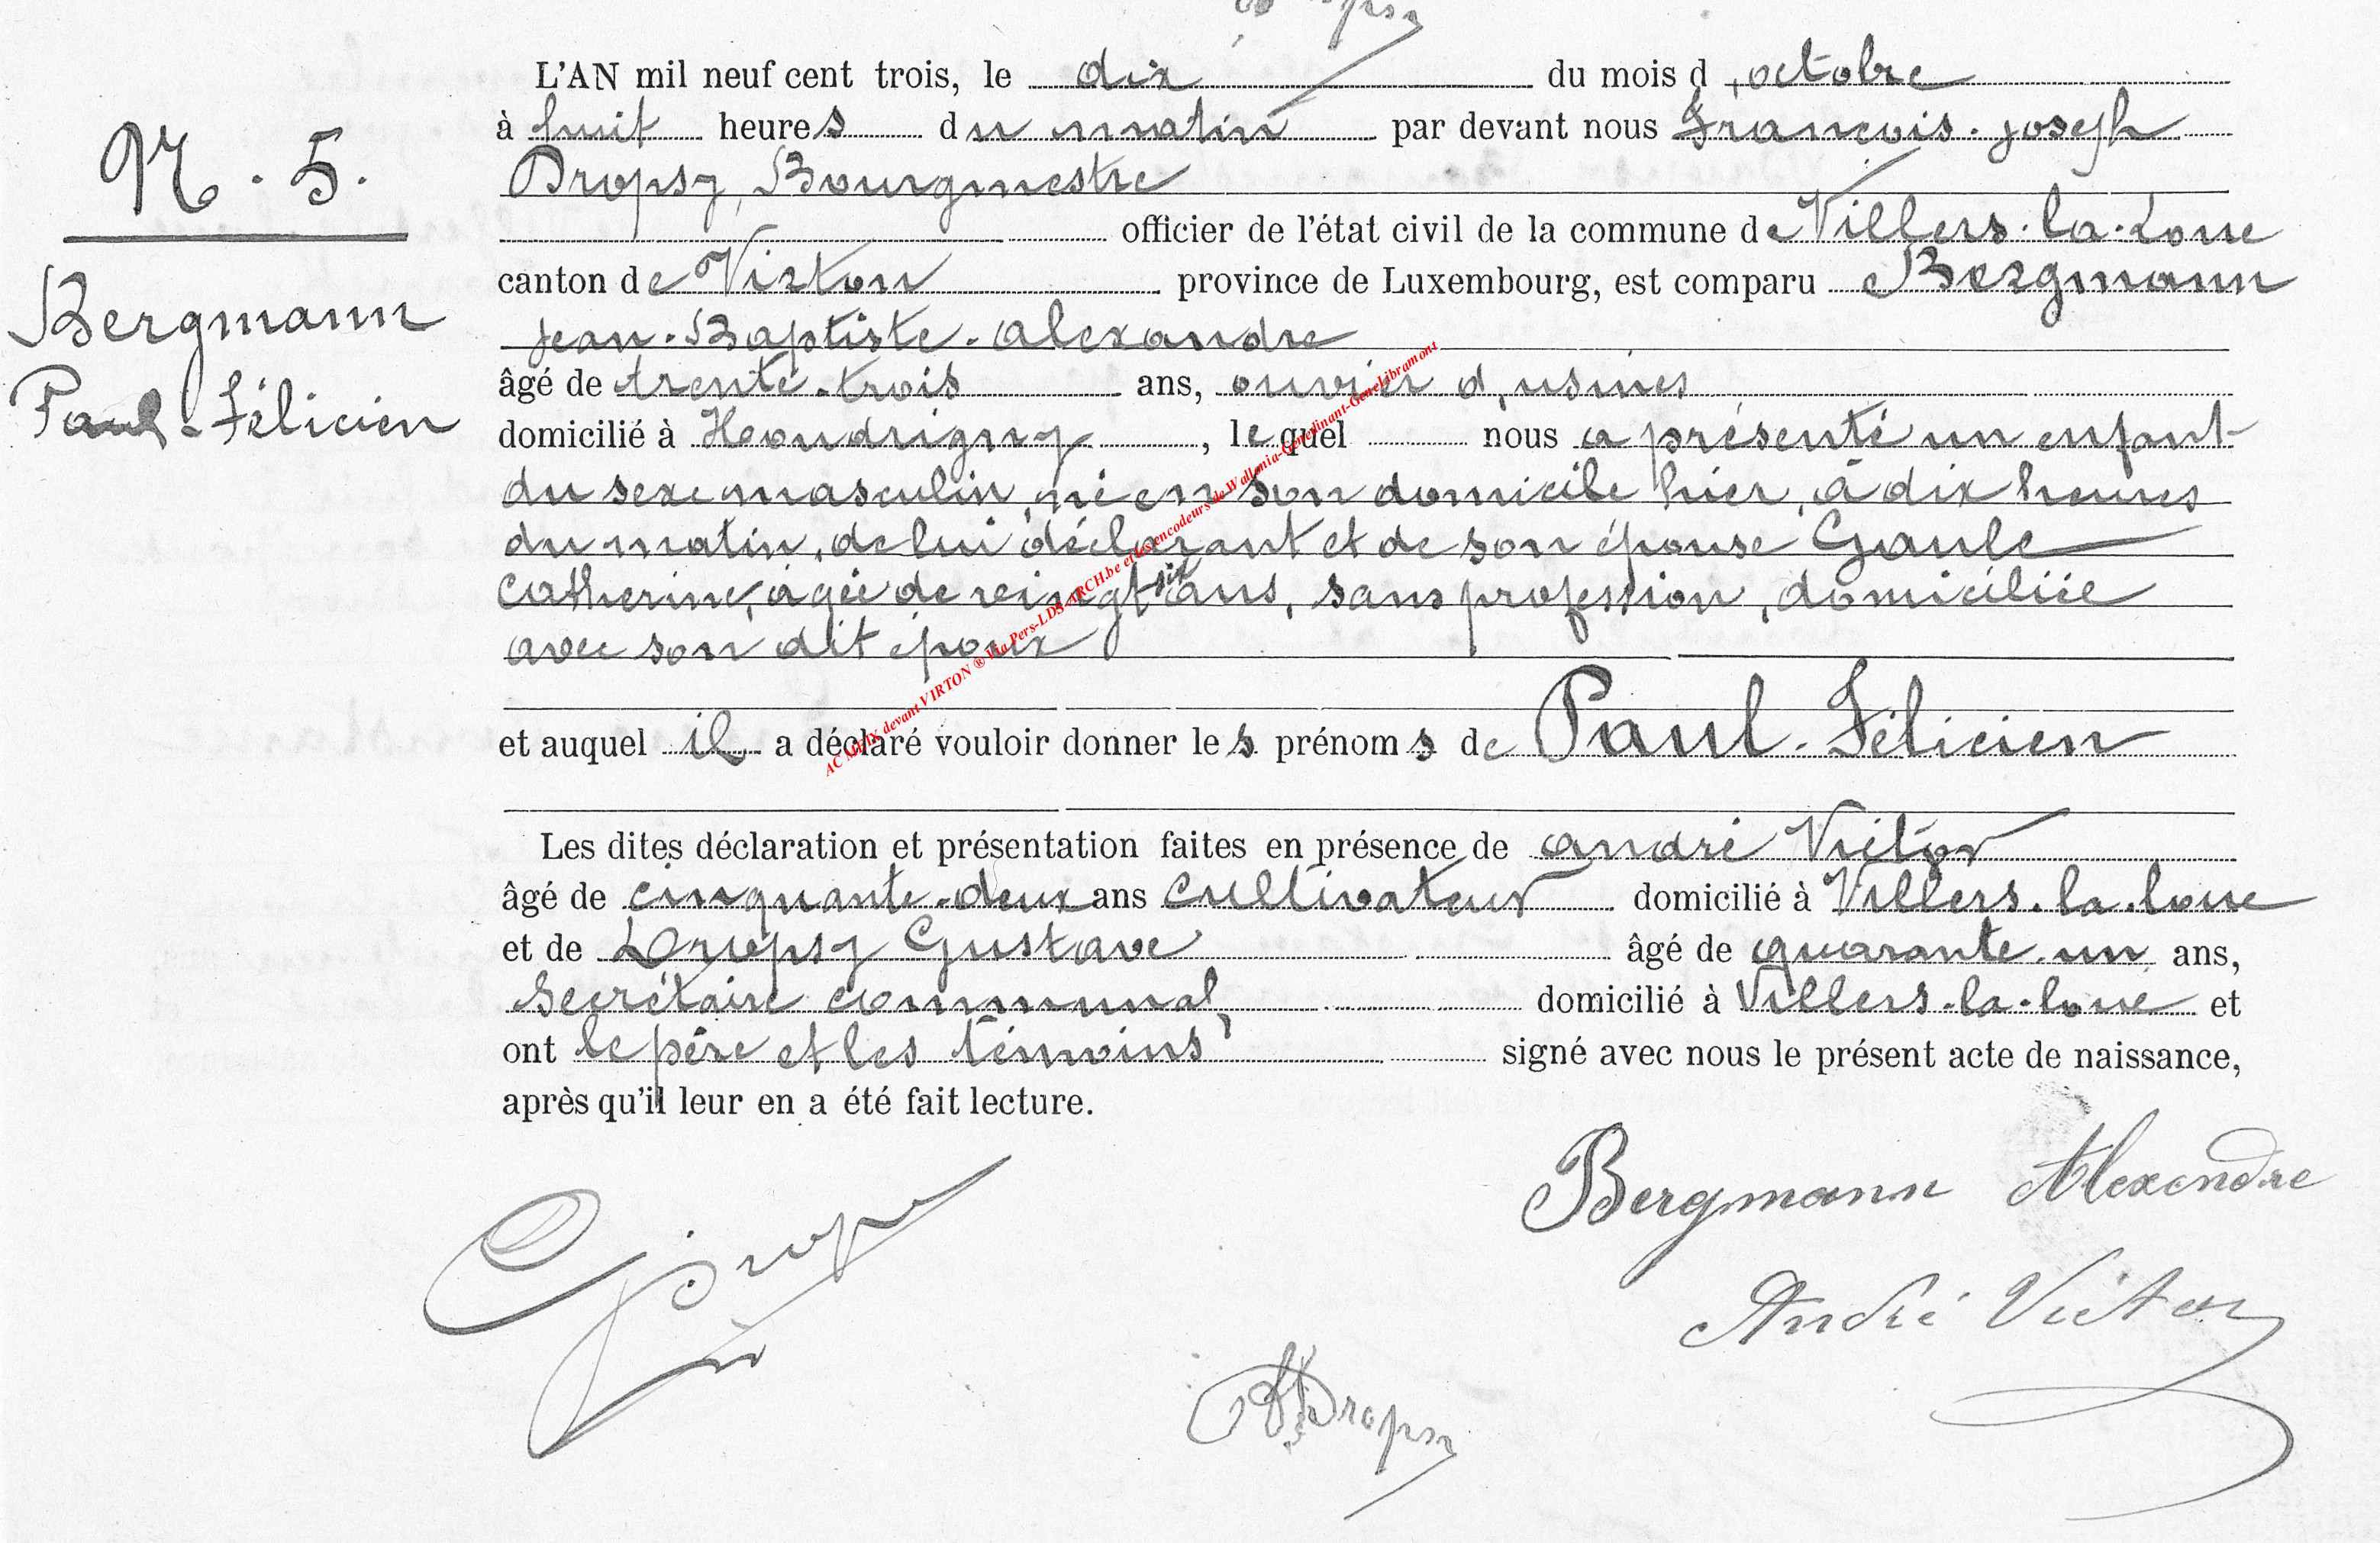 N. 5.
Bergmann
Paul-Félicien
L'AN mil neuf cent trois, le dix du mois d'octobre
à huit heures du matin par devant nous François-joseph
Dropsy, Bourgmestre
officier de l'état civil de la commune de Villers-la-Loue
canton de Virton province de Luxembourg, est comparu Bergmann
Jean-Baptiste-alexandre
âgé de trente-trois ans, ouvrier d'usines
domicilié à Houdrigny, lequel nous a présenté un enfant
du sexe masculin, né en son domicile hier, à dix heures
du matin, de lui déclarant et de son épouse Gaule
Catherine, agée de vingt six ans, sans profession, domiciliée
avec son dit époux
et auquel il a déclaré vouloir donner les prénoms de Paul-Félicien
Les dites déclaration et présentation faites en présence de andré Victor
âgé de cinquante-deux ans cultivateur domicilié à Villers-la-loue
et de Dropsy Gustave âgé de quarante-un ans,
Secrétaire communal, domicilié à Villers-la-loue et
ont le père et les témoins signé avec nous le présent acte de naissance,
après qu'il leur en a été fait lecture.
Bergmann Alexendre
André Victor
Dropsy
AC MEIX devant VIRTON ® Via Pers-LDS-ARCH.be et les encodeurs de Wallonia-Genedinant-GeneLibramont